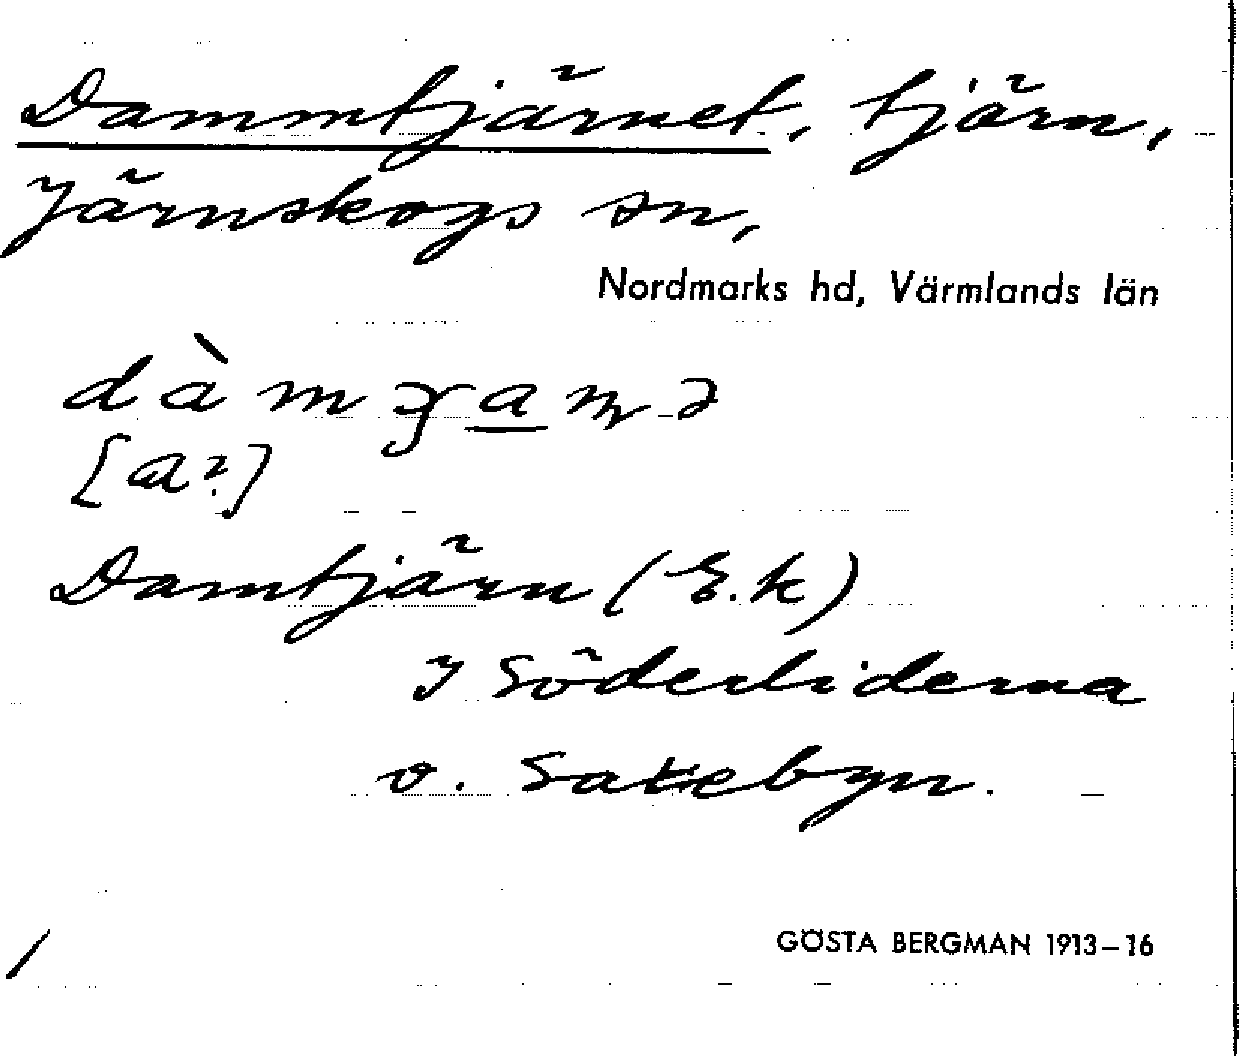 Dammtjärnet, tjärn,
Järnskogs sn,
Nordmarks hd, Värmlands län
[a?]
Damtjärn (E.k)
I Söderliderna
o. Satebyn.
GÖSTA BERGMAN 1913–16